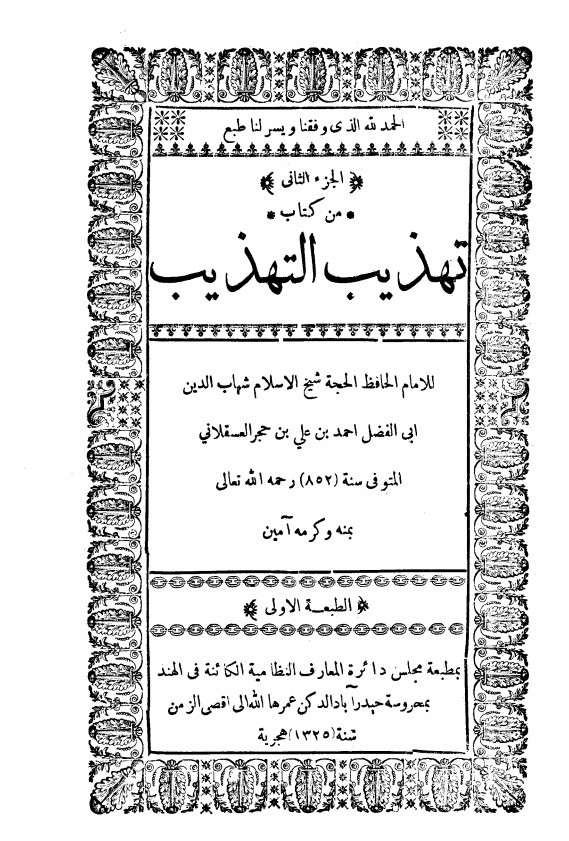 الحمد لله الذى وفقنا ويسر لنا طبع
الجزء الثانى
من كتاب
تهذيب التهذيب
للامام الحافظ الحجة شيخ الاسلام شهاب الدين
ابى الفضل احمد بن علي بن حجر العسقلاني
المتوفى سنة (٨٥٢) رحمه الله تعالى
بمنه وكرمه آمين
الطبعة الاولى
بمطبعة مجلس دائرة المعارف النظامية الكائنة فى الهند
بمحروسة حيدرآباد الدكن عمرها الله الى اقصى الزمن
سنة (١٣٢٥) هجرية